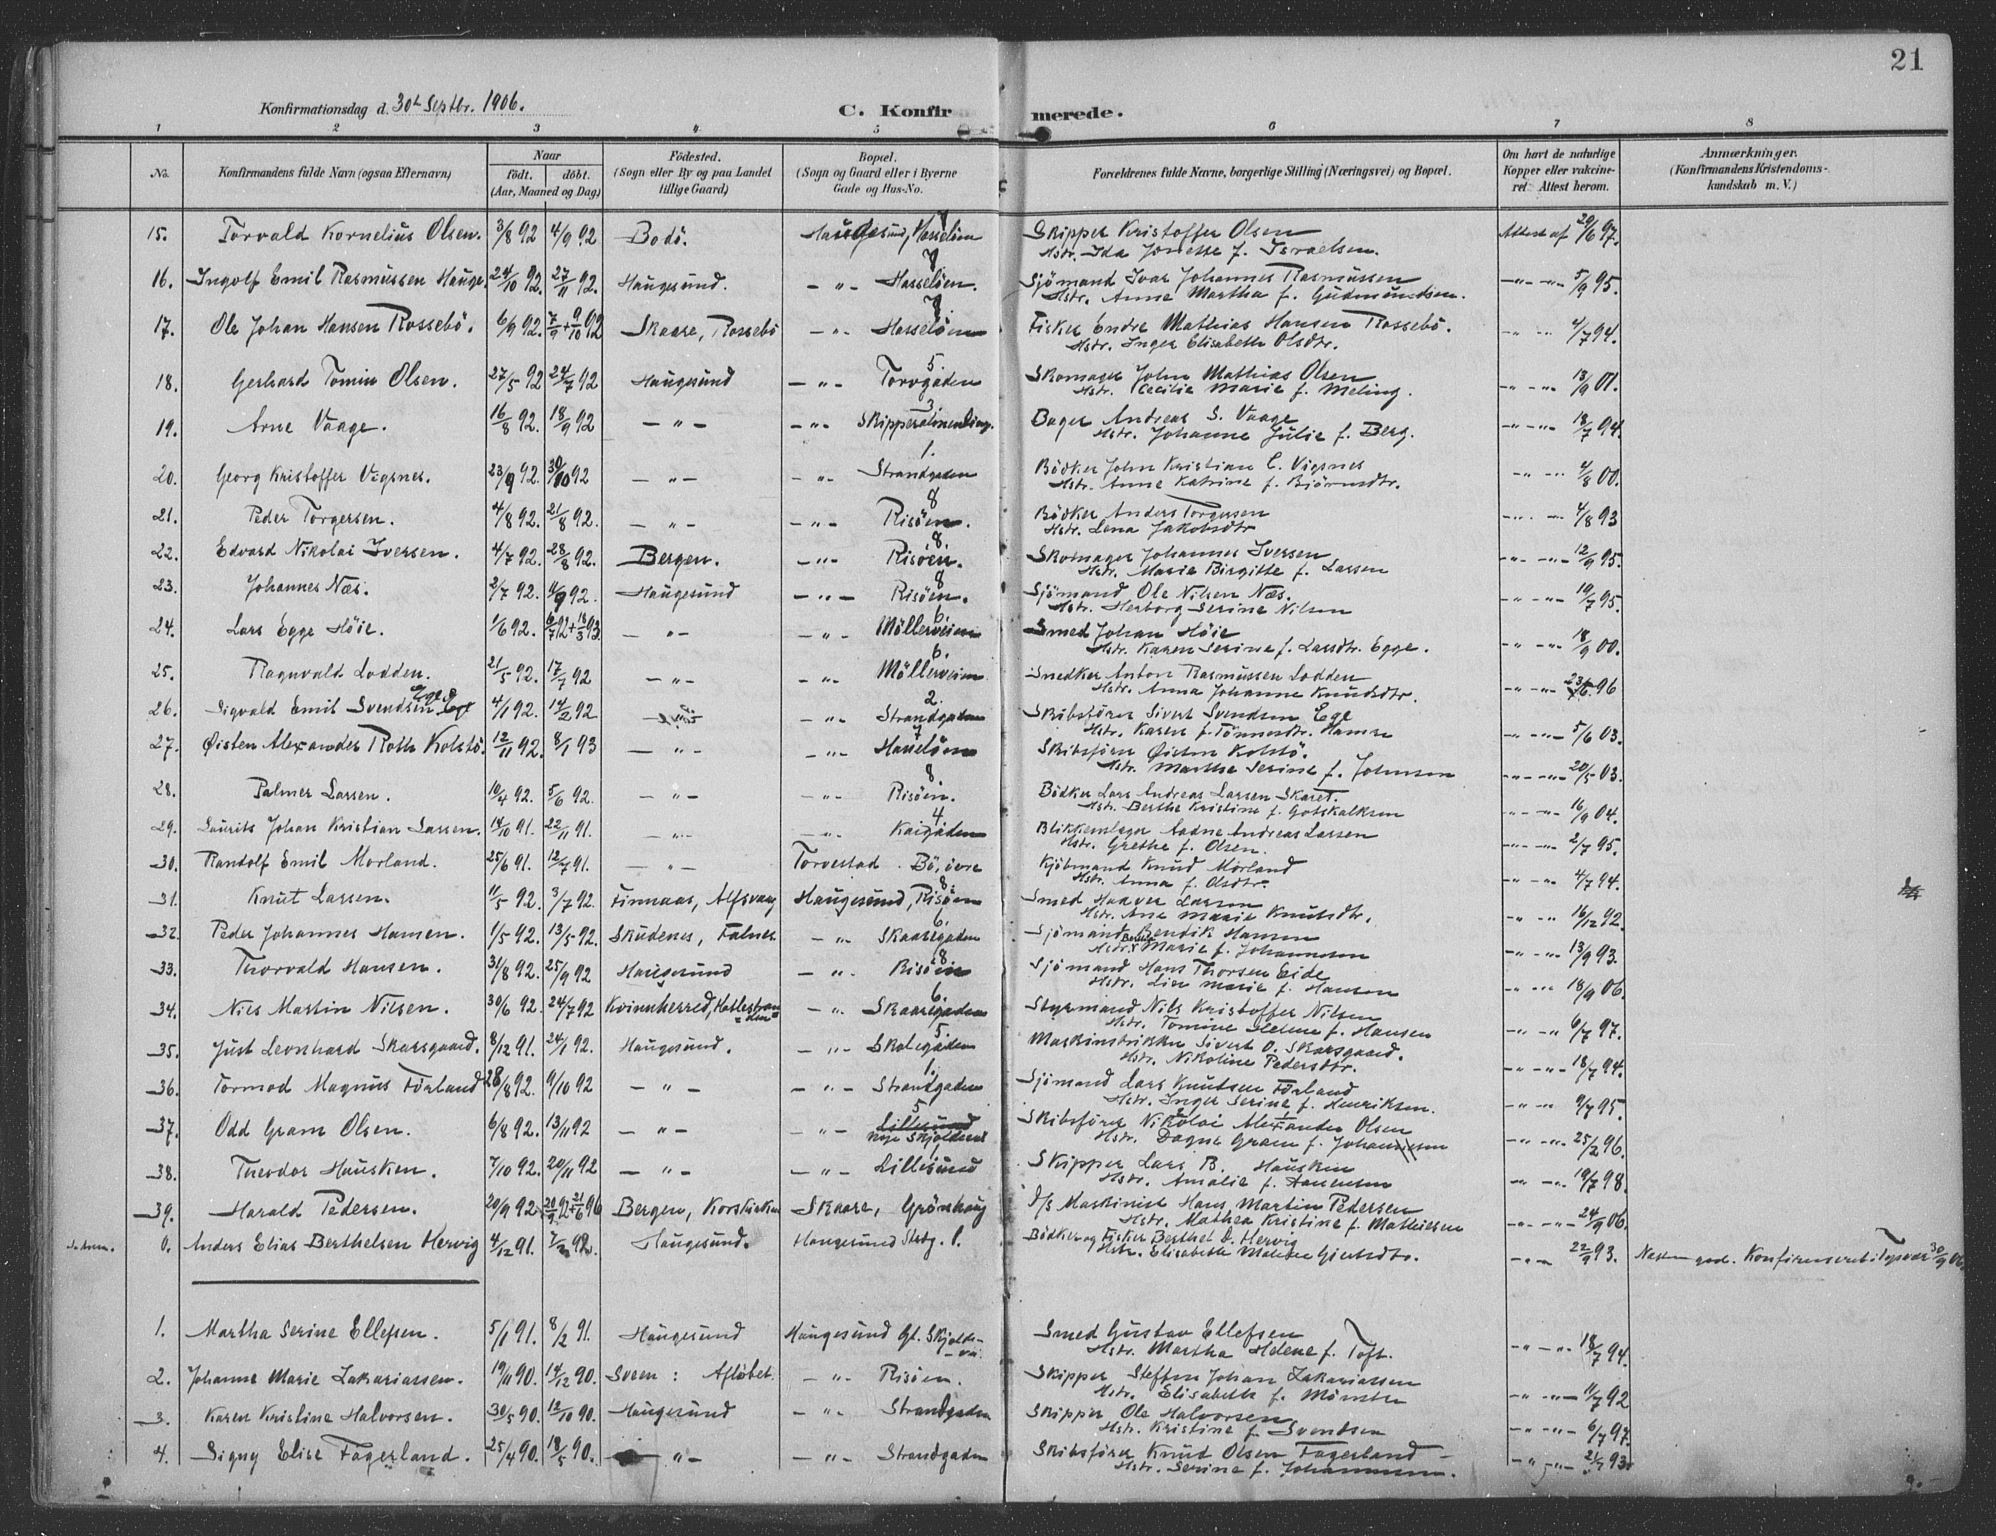 21
Konfirmationsdag d. 30te Septbr. 1906.
C. Konfirmerede.
1 2 3 4 5 6 7 8
No. Konfirmandens fulde Navn (ogsaa Efternavn) Naar født. døbt. (Aar, Maaned og Dag) Fødested. (Sogn eller By og paa Landet tillige Gaard) Bopæl. (Sogn og Gaard eller i Byerne Gade og Hus-No. Forældrenes fulde Navne, borgerlige Stilling (Næringsvei) og Bopæl. Om havt de naturlige Kopper eller vakcineret. Attest herom. Anmærkninger. (Konfirmandens Kristendomskundskab m. V.)
15. Torvald Kornelius Olsen. 3/8 92 4/9 92 Bodö. Haugesund, Hasselöen 7 Skipper Kristoffer Olsen Attest af 29/6 97.
Hstr. Ida Jonette f. Israelsen.
16. Ingolf Emil Rasmussen Hauge. 24/10 92. 27/11 92. Haugesund. – " – Hasselöen. 7 Sjömand Ivar Johannes Rasmussen – " – " – 5/9 95.
Hstr. Anne Martha f. Gudmundsen.
17. Ole Johan Hansen Rossebö. 6/9 92. 7/9 + 9/10 92 Skaare, Rossebö – " – Hasselöen 7 Fisker Endre Mathias Hansen Rossebö. – " – " – 4/7 94.
Hstr. Inger Elisabeth Olsdtr.
18. Gerhard Tomin Olsen. 27/5 92 24/7 92 Haugesund – " – Torvgaden 5. Skomager John Mathias Olsen – " – " – 13/9 01.
Hstr. Cecilie Marie f. Meling.
19. Arne Vaage. 16/8 92. 18/9 92 – " – – " – Skipperalmending. 3. Bager Andreas S. Vaage – " – " – 18/7 94.
Hstr. Johanne Julie f. Berg.
20. Georg Kristoffer Vigsnes. 23/9 92. 30/10 92 – " – – " – Strandgaden 1. Bödker John Kristian C. Vigsnes – " – " – 4/8 00.
Hstr. Anne Katrine f. Björnsdtr.
21. Peder Torgersen. 4/8 92. 21/8 92. – " – – " – Risöen. 8 Bödker Anders Torgersen – " – " – 4/8 93
Hstr. Lena Jakobsdtr
22. Edvard Nikolai Iversen. 4/7 92. 28/8 92. Bergen. – " – Risöen. 8. Skomager Johannes Iversen – " – " – 12/9 95.
Hstr. Marie Birgitte f. Larsen
23. Johannes Næs. 2/7 92. 4/9 92. Haugesund – " – Risöen. 8 Sjömand Ole Nilsen Næs. – " – " – 19/7 95.
Hstr. Herborg Serine Nilsen
24. Lars Egge Höie. 1/6 92. 6/7 92 + 18/3 93. – " – – " – Möllerveien 6. Smed Johan Höie – " – " – 18/9 00.
Hstr. Karen Serine f. Larsdtr. Egge.
25. Ragnvald Lodden. 21/5 92. 17/7 92 – " – – " – Möllerveien 6. Snedker Anton Rasmussen Lodden – " – " – 96
Hstr. Anna Johanne Knudsdtr.
26. Sigvald Emil Svendsen Ege 4/1 92. 14/2 92 – " – Strandgaden 2. Skibsförer Sivert Svendsen Ege – " – " – 5/6 03.
Hstr. Karen f. Tönnesdtr. Hamre
27. Øisten Alexander Roth Kolstö. 12/11 92. 8/1 93 – " – – " – Hasselöen 7 Skibsförer Øisten Kolstö. – " – " – 20/5 03.
Hstr. Marthe Serine f. Johnsen
28. Palmer Larsen. 10/4 92. 5/6 92. – " – – " – Risöen. 8. Bödker Lars Andreas Larsen Skaret. – " – " – 16/9 04.
Hstr. Berthe Kristine f. Gotskalksen
29. Laurits Johan Kristian Larsen. 14/10 91. 22/11 91. – " – – " – Kaigaden 4 Blikkenslager Aadne Andreas Larsen – " – " – 2/7 95.
Hstr. Grethe f. Olsen.
30. Randolf Emil Mørland. 25/6 91. 12/7 91. – " – Torvestad. Bö, övre Kjöbmand Knud Mörland – " – " – 4/7 94.
Hstr. Anna f. Olsdtr.
31. Knut Larsen. 11/5 92. 3/7 92. Finnaas, Alfsvaag Haugesund, Risöen 8. Smed Haaver Larsen – " – " – 16/12 92.
Hstr. Ane Marie Knutsdtr.
32. Peder Johannes Hansen. 1/5 92. 13/5 92. Skudenes, Falnes – " – Skaaregaden 6. Sjömand Bendik Hansen – " – " – 13/9 93.
Hstr. Marie f. Johannesen
33. Thorvald Hansen. 31/8 92. 25/9 92 Haugesund – " – Risöen 8 Sjömand Hans Thorsen Eide – " – " – 18/9 06.
Hstr. Lier Marie f. Hansen
34. Nils Martin Nilsen. 30/6 92. 24/7 92 Kvinnherred, – " – Skaaregaden 6. Styrmand Nils Kristoffer Nilsen – " – " – 6/7 97.
Hstr. Tomine Helene f. Hansen
35. Just Leonhard Skarsgaard. 8/12 91. 24/1 92. Haugesund. – " – Skolegaden 5. Maskinstrikker Sivert O. Skarsgaard. – " – " – 18/7 94.
Hstr. Nikoline Pedersdtr.
36. Tormod Magnus Förland 28/8 92. 9/10 92 – " – – " – Strandgaden 1. Sjömand Lars Knutsen Förland – " – " – 9/7 95.
Hstr. Inger Serine f. Henriksen.
37. Odd Gram Olsen. 6/8 92. 13/11 92 – " – – " – Lillesund 5 Nye Skjoldavei Skibsförer Nikolai Alexander Olsen – " – " – 25/2 96.
Hstr. Dagne Gram f. Johannesen
38. Theodor Hausken. 7/10 92. 20/11 92 – " – – " – Lillesund Skipper Lars B. Hausken – " – " – 19/7 98.
Hstr. Amalie f.
39. Harald Pedersen. 20/9 92 92 + 21/6 96 Bergen, Korskirken Skaare, Grönhaug d/s Maskinist Hans Martin Pedersen – " – " – 24/9 06.
Hstr. Mathea Kristine f. Mathiesen
0. Anders Elias Berthelsen Hervig 4/12 91. 7/2 92. Haugesund. Haugesund Strtg. 1. Bödker og Fisker Berthel D. Hervig – " – 22/9 93. Næsten god. Konfirmeret i Tysvær 30/9 06.
Hstr. Elisabeth Malene
1. Martha Serine Ellefsen. 5/1 91. 8/2 91. Haugesund Haugesund Gl. Skjoldavei Smed Gustav Ellefsen – " – " – 18/7 94.
Hstr. Martha Helene f. Toft.
2. Johanne Marie Zakariassen. 19/11 90. 14/12 90. Sveen: Aflöbet. – " – Risöen. Skipper Steffen Johan Zakariassen – " – " – 11/7 92
Hstr. Elisabeth f. Mömster
3. Karen Kristine Halvorsen. 30/5 90. 12/10 90. Haugesund – " – Strandgaden Skipper Ole Halvorsen – " – " – 6/7 97.
Hstr. Kristine f. Svendsen
4. Signy Elise Fagerland. 25/4 90. 18/5 90. – " – – " – Strandgaden Skibsförer Knud Olsen Fagerland – " – " – 21/7 93.
Hstr. Serine f. Johannesen.